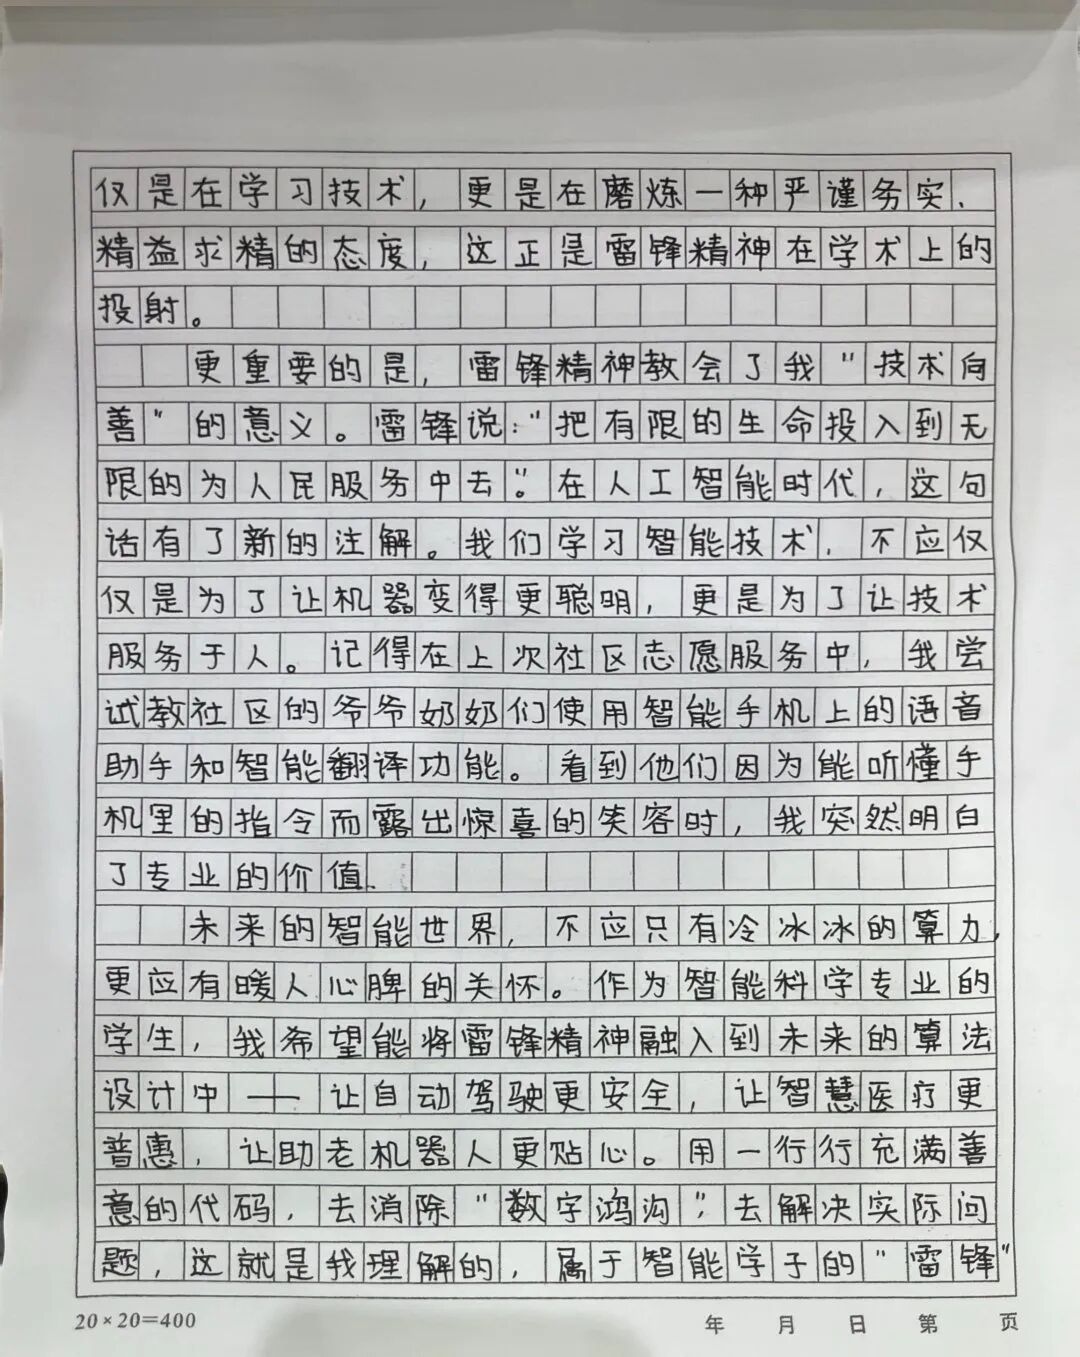 仅是在学习技术，更是在磨炼一种严谨务实、
精益求精的态度，这正是雷锋精神在学术上的
投射。
更重要的是，雷锋精神教会了我“技术向
善”的意义。雷锋说：“把有限的生命投入到无
限的为人民服务中去”。在人工智能时代，这句
话有了新的注解。我们学习智能技术，不应仅
仅是为了让机器变得更聪明，更是为了让技术
服务于人。记得在上次社区志愿服务中，我尝
试教社区的爷爷奶奶们使用智能手机上的语音
助手和智能翻译功能。看到他们因为能听懂手
机里的指令而露出惊喜的笑容时，我突然明白
了专业的价值.
未来的智能世界，不应只有冷冰冰的算力，
更应有暖人心脾的关怀。作为智能科学专业的
学生，我希望能将雷锋精神融入到未来的算法
设计中——让自动驾驶更安全，让智慧医疗更
普惠，让助老机器人更贴心。用一行行充满善
意的代码，去消除“数字鸿沟”，去解决实际问
题，这就是我理解的，属于智能学子的“雷锋”
20×20=400 年 月 日 第 页